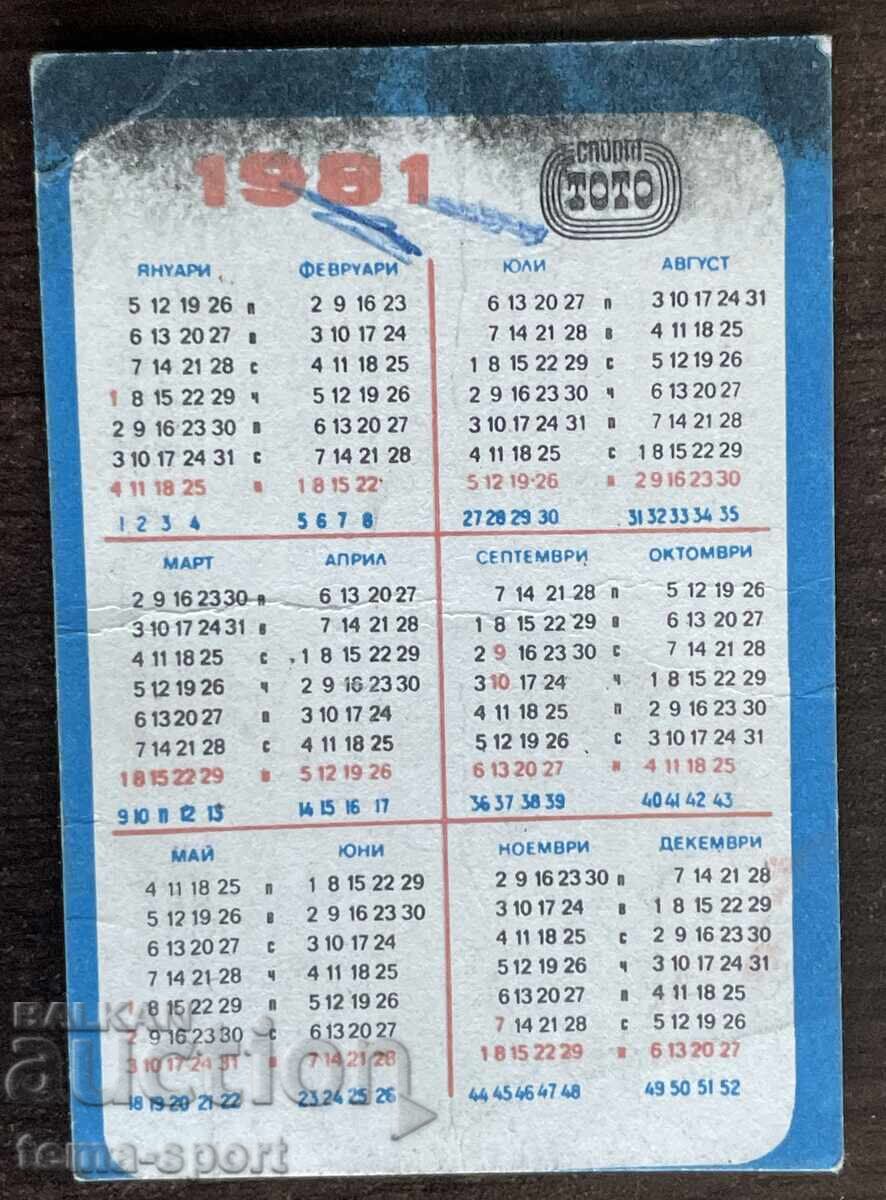 1981
СПОРТ
ТОТО
ЯНУАРИ ФЕВРУАРИ
5 12 19 26 П 2 9 16 23
6 13 20 27 В 3 10 17 24
7 14 21 28 С 4 11 18 25
1 8 15 22 29 Ч 5 12 19 26
2 9 16 23 30 П 6 13 20 27
3 10 17 24 31 С 7 14 21 28
4 11 18 25 Н 1 8 15 22
1 2 3 4 5 6 7 8
ЮЛИ АВГУСТ
6 13 20 27 П 3 10 17 24 31
7 14 21 28 В 4 11 18 25
1 8 15 22 29 С 5 12 19 26
2 9 16 23 30 Ч 6 13 20 27
3 10 17 24 31 П 7 14 21 28
4 11 18 25 С 1 8 15 22 29
5 12 19 26 Н 2 9 16 23 30
27 28 29 30 31 32 33 34 35
МАРТ АПРИЛ
2 9 16 23 30 П 6 13 20 27
3 10 17 24 31 В 7 14 21 28
4 11 18 25 С 1 8 15 22 29
5 12 19 26 Ч 2 9 16 23 30
6 13 20 27 П 3 10 17 24
7 14 21 28 С 4 11 18 25
1 8 15 22 29 Н 5 12 19 26
9 10 11 12 13 14 15 16 17
СЕПТЕМВРИ ОКТОМВРИ
7 14 21 28 П 5 12 19 26
1 8 15 22 29 В 6 13 20 27
2 9 16 23 30 С 7 14 21 28
3 10 17 24 Ч 1 8 15 22 29
4 11 18 25 П 2 9 16 23 30
5 12 19 26 С 3 10 17 24 31
6 13 20 27 Н 4 11 18 25
36 37 38 39 40 41 42 43
МАЙ ЮНИ
4 11 18 25 П 1 8 15 22 29
5 12 19 26 В 2 9 16 23 30
6 13 20 27 С 3 10 17 24
7 14 21 28 Ч 4 11 18 25
1 8 15 22 29 П 5 12 19 26
2 9 16 23 30 С 6 13 20 27
3 10 17 24 31 Н 7 14 21 28
18 19 20 21 22 23 24 25 26
НОЕМВРИ ДЕКЕМВРИ
2 9 16 23 30 П 7 14 21 28
3 10 17 24 В 1 8 15 22 29
4 11 18 25 С 2 9 16 23 30
5 12 19 26 Ч 3 10 17 24 31
6 13 20 27 П 4 11 18 25
7 14 21 28 С 5 12 19 26
1 8 15 22 29 Н 6 13 20 27
44 45 46 47 48 49 50 51 52
BALKAN
auction
fema-sport